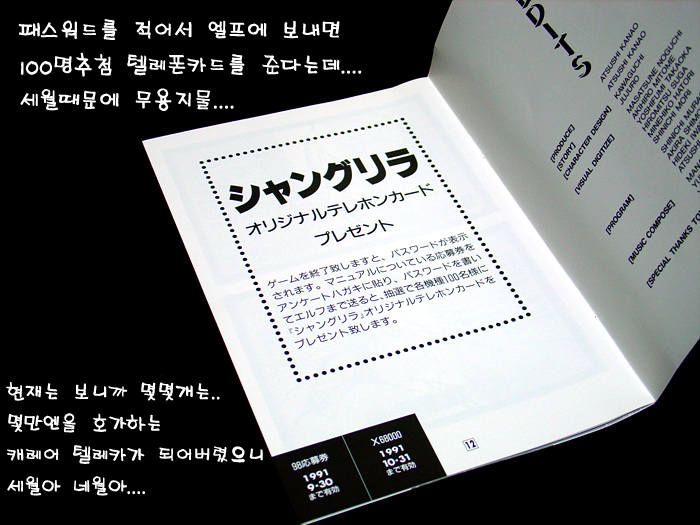 패스워드를 적어서 엘프에 보내면
100명추첨 텔레폰카드를 준다는데....
세월때문에 무용지물....
シャングリラ
オリジナルテレホンカード
プレゼント
ゲームを終了致しますと、パスワードが表示
されます。マニュアルについている応募券を
アンケートハガキに貼り、パスワードを書い
てエルフまで送ると、抽選で各機種100名様に
『シャングリラ』オリジナルテレホンカードを
プレゼント致します。
98応募券
1991
9·30
まで有効
X68000
1991
10·31
まで有効
12
DITS
[PRODUCE]
[STORY]
[CHARACTER DESIGN]
[VISUAL DIGITIZE]
[PROGRAM]
[MUSIC COMPOSE]
[SPECIAL THANKS TO
ATSUSHI KANAO
ATSUSHI KANAO
KAWAGUCHI
JUKURO
MASATSUNE NOGUCHI
AKIHIRO SUTOME
현재는 보니까 몇몇개는..
몇만엔을 호가하는
캐레어 텔레카가 되어버렸으니
세월아 네월아....